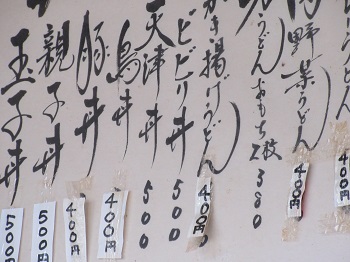 うどん
肉野菜うどん
400円
力うどんおもち2枚
380
かき揚げうどん
400円
どどり丼
500
天津丼
500
鳥丼
400円
豚丼
400円
親子丼
500円
玉子丼
500円